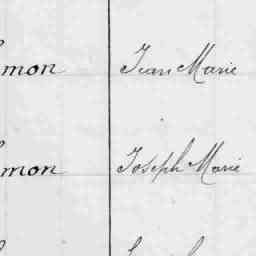 mon Jean Marie
mon Joseph Marie